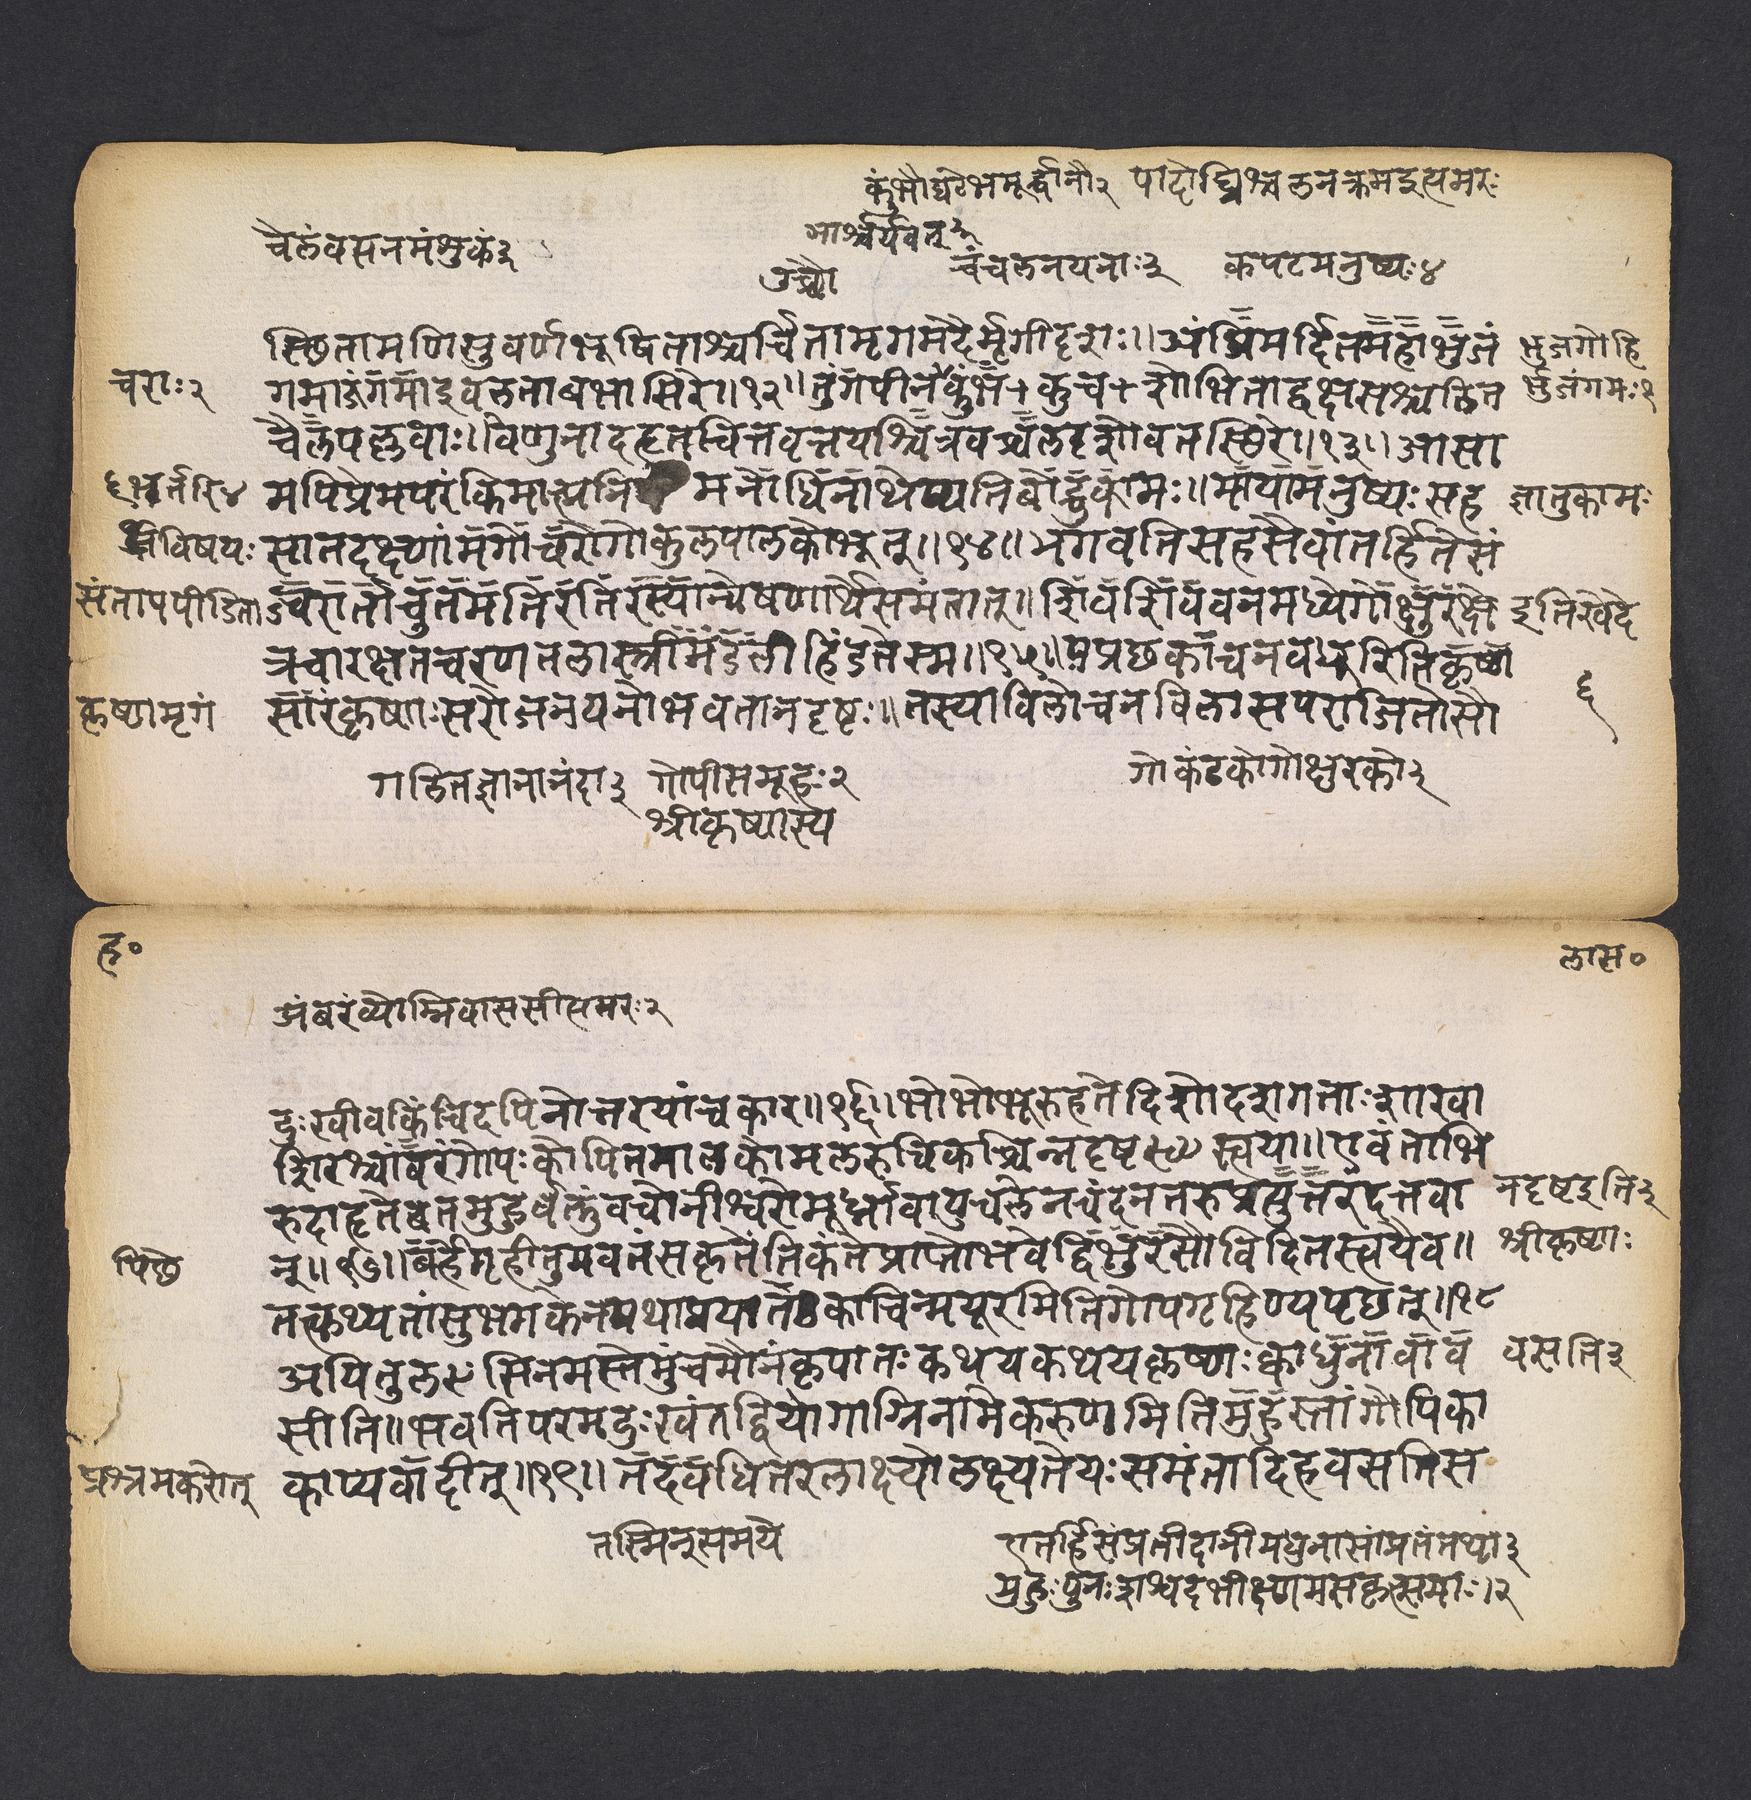 कुंभौघटेभमूर्द्धानौ२ पादोंघ्रिश्चलनक्रमइत्यमरः
चैलंवसनमंशुकं३ आश्चर्यवत्३
उच्चौ चंचलनयनाः३ कपटमनुष्यः४
स्छितामणिसुवर्णभूषिताश्चर्चितामृगमदैर्मृगीदृशः॥अंघ्रिमर्दितमहाभुजं भुजगोहि
चराः२ गमाजंगमाइवलताबभासिरे॥१२॥तुंगपीनकुंभकुचशोभिताद्वक्षसश्चलित र्भुजंगमः१
चैलपल्लवाः॥वेणुनादहृतचित्तवृत्तयश्चित्रवच्चलदृशोवतस्छिरे॥१३॥आसा
मपिप्रेमपरंकिमात्मनि मनोधिनाथेप्यतिबोद्धुकामः॥मायामनुष्यः सह ज्ञातुकामः
विषयः सातदक्ष्णामगोचरोगोकुलपालकोभूत्॥१४॥भगवतिसहसैवांतर्हितेसं
संतापपीडिता ज्वरार्ताच्युतमतिरतिरस्यान्वेषणार्थंसमंतात्॥शिवशिववनमध्येगोक्षुरक्षे इतिखेदे
त्रचारक्षतचरणतलास्त्रीमंडलीहिंडतेस्म॥१५॥पप्रछकाचनवधूरितिकृष्ण ६
कृष्णमृगं सारंकृष्णःसरोजनयनोभवतानदृष्टः॥तस्याविलोचनविलासपराजितोसौ
गलितज्ञानानंदा३ गोपीसमूहः२ गोकंटकोगोक्षुरको३
श्रीकृष्णस्य
ह॰ लास॰
अंबरंव्योम्निवाससीत्यमरः२
दुःखीवकिंचिदपिनोत्तरयांचकार॥१६॥भोभोभूरुहतेदिशोदशगताःशाखा
शिरश्चांबरंगोपःकोपितमालकोमलरुचिकश्चिन्नदृष्टस्त्वया॥एवंताभि
रुदाहृतेबतमुहुर्वक्तुंवचोनीश्वरोमूर्ध्नावायुचलेनचंदनतरुःप्रत्युत्तरंदत्तवा नदृष्टइति३
पिछे न्॥१७॥बर्हंगृहीतुमवतंसकृतेंतिकंतेप्राप्तोभवेद्विभुरसौविदितस्त्वयैव॥ श्रीकृष्णः
तत्कथ्यतांसुभगकेनपथाप्रयातकाचिन्मयूरमितिगोपगृहिण्यपृछत्॥१८
अयितुलसिनमस्तेमुंचमौनंकृपातः कथयकथयकृष्णः क्वाधुनावाव वसति३
सीति॥भवतिपरमदुःखंतद्वियोगाग्निनामेकरुणमितिमुहुस्तांगोपिका
प्रश्नमकरोत् काप्यवादीत्॥१९॥तदवधितरलाक्ष्योलक्ष्यतेयःसमंतादिहवसतिस
तस्मिन्समये एतर्हिसंप्रतीदानीमधुनासांप्रतंतथा३
मुहुःपुनःशश्वदभीक्ष्णमसकृत्समाः।२